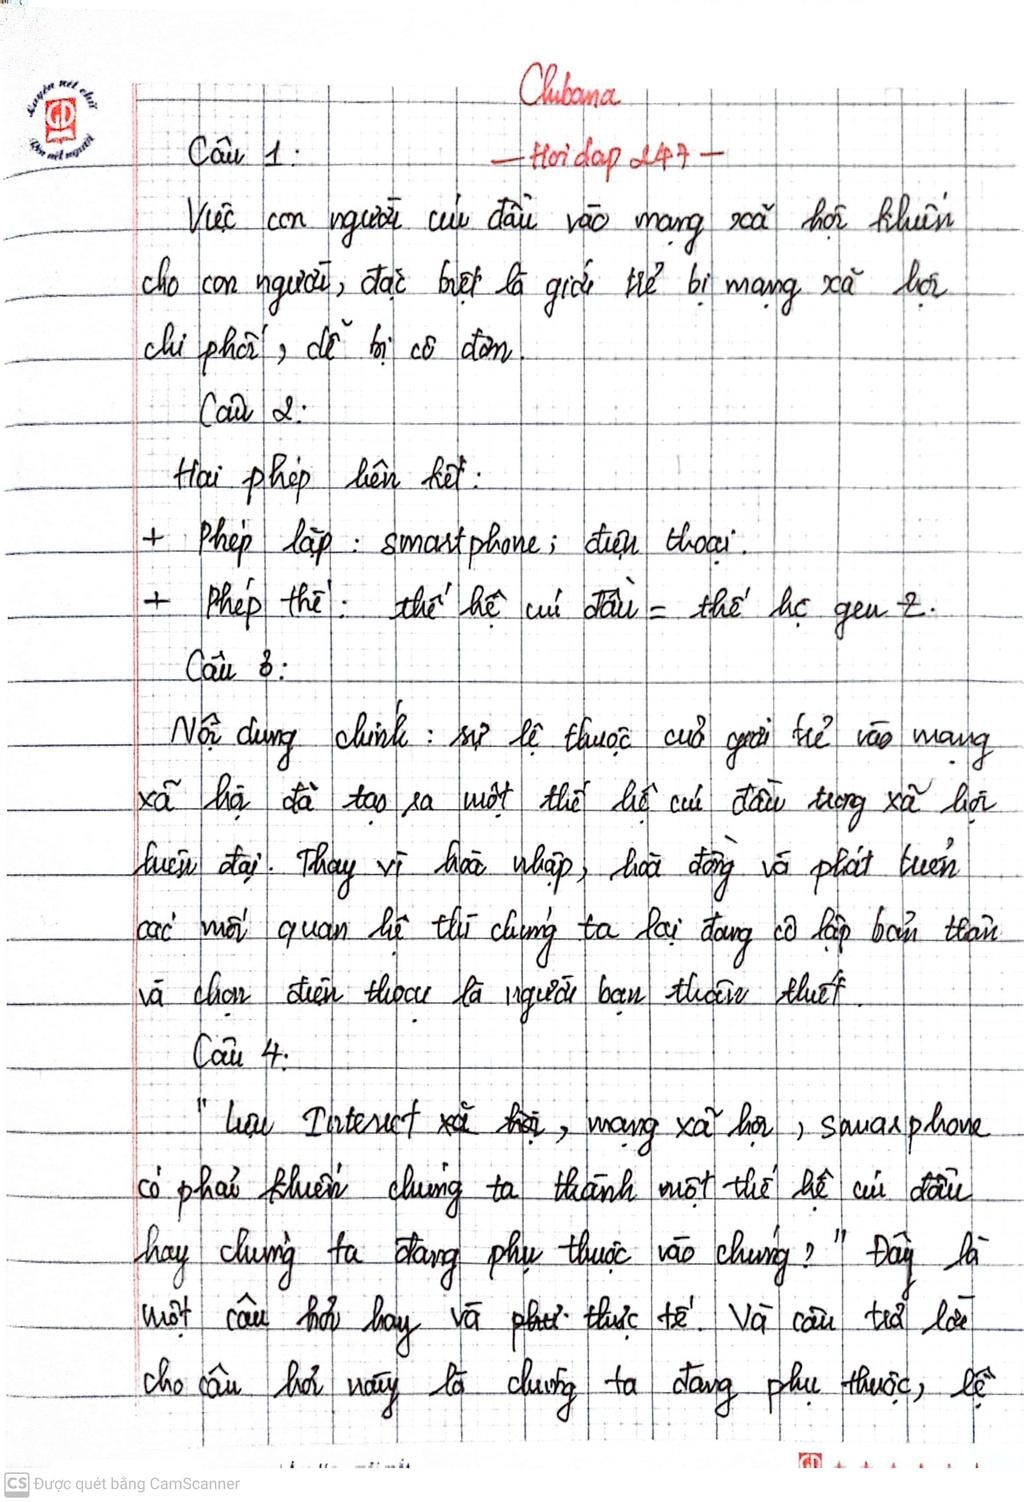 Chibana
Luyện nét chữ
GD
Rèn nết người
Câu 1:
— Hoidap 247 —
Việc con người cúi đầu vào mạng xã hội khiến
cho con người, đặc biệt là giới trẻ bị mạng xã hội
chi phối, dễ bị cô đơn.
Câu 2:
Hai phép liên kết:
+ Phép lặp: smartphone; điện thoại.
+ Phép thế: thế hệ cúi đầu = thế hệ gen Z.
Câu 3:
Nội dung chính: sự lệ thuộc cuả giới trẻ vào mạng
xã hội đã tạo ra một thế hệ cúi đầu trong xã hội
hiện đại. Thay vì hoà nhập, hoà đồng và phát triển
các mối quan hệ thì chúng ta lại đang cô lập bản thân
và chọn điện thoại là người bạn thân thiết.
Câu 4:
" Liệu Internet xã hội, mạng xã hội, smarphone
có phải khiến chúng ta thành một thế hệ cúi đầu
hay chúng ta đang phụ thuộc vào chúng? " Đây là
một câu hỏi hay và thực tế. Và câu trả lời
cho câu hỏi này là chúng ta đang phụ thuộc, lệ
GD
CS Được quét bằng CamScanner